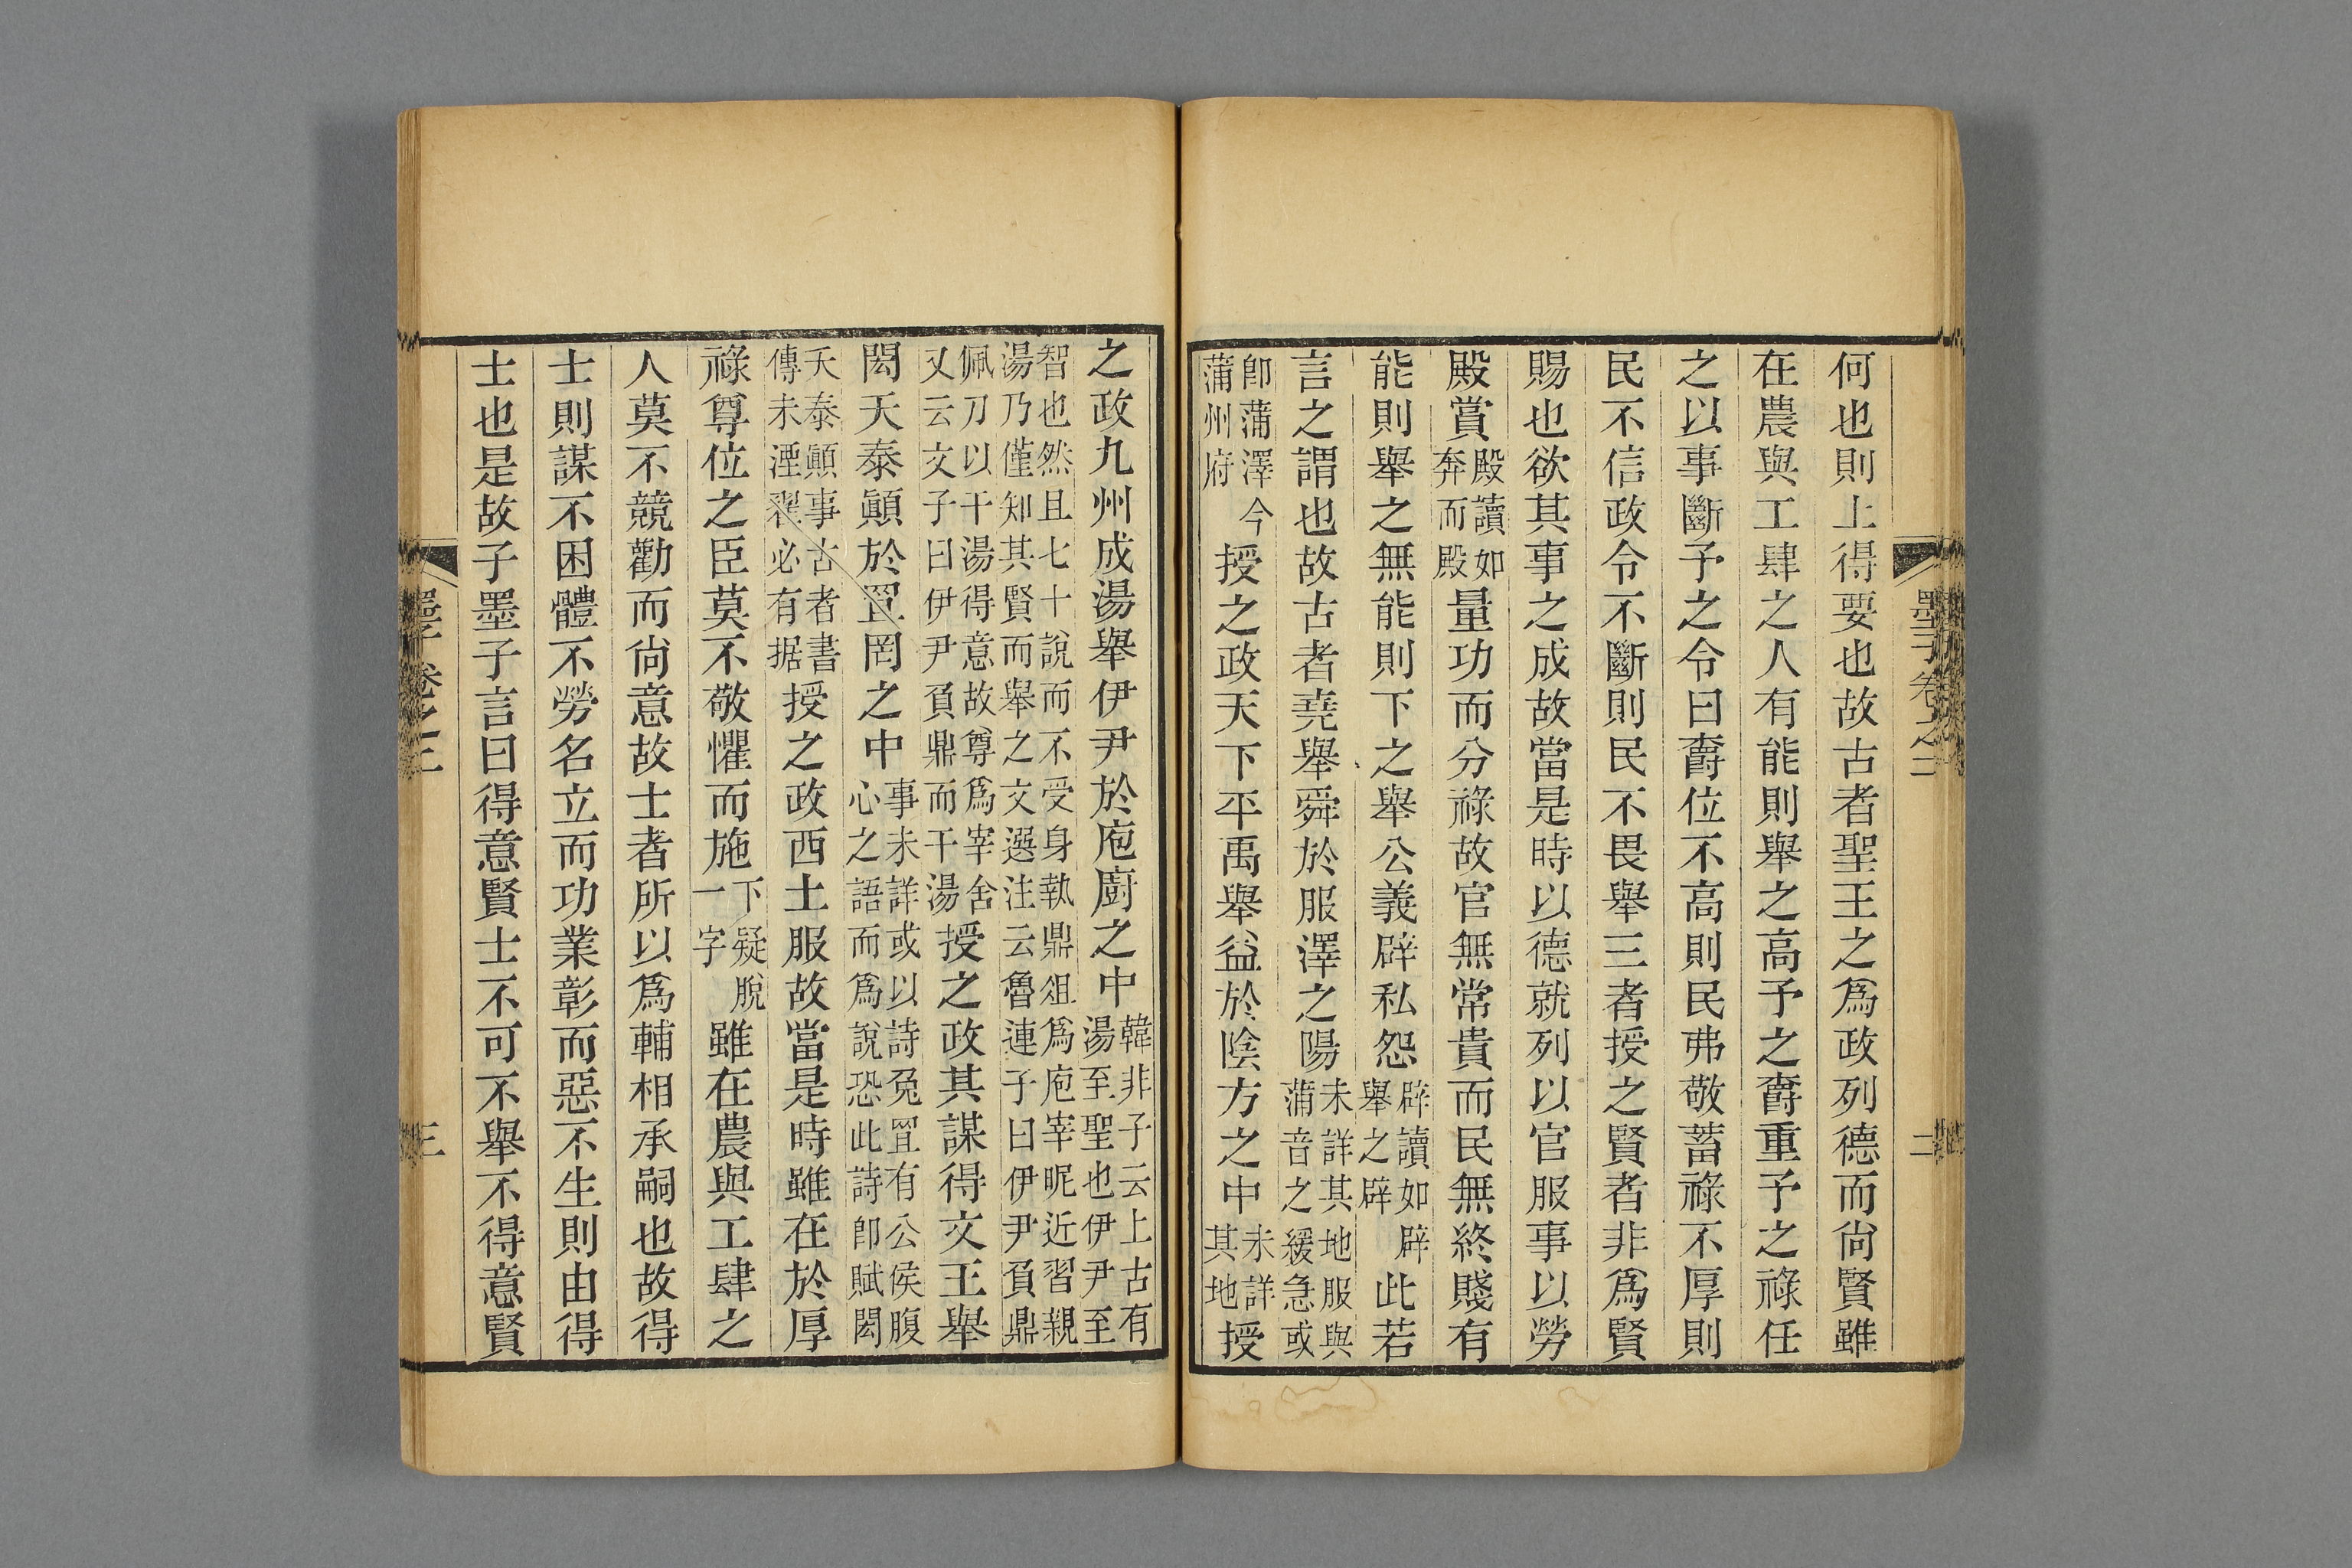 墨子卷之二 二
何也則上得要也故古者聖王之爲政列德而尙賢雖
在農與工肆之人有能則舉之高予之爵重予之祿任
之以事斷予之令曰爵位不高則民弗敬蓄祿不厚則
民不信政令不斷則民不畏舉三者授之賢者非爲賢
賜也欲其事之成故當是時以德就列以官服事以勞
殿賞殿讀如奔而殿量功而分祿故官無常貴而民無終賤有
能則舉之無能則下之舉公義辟私怨辟讀如辟舉之辟此若
言之謂也故古者堯舉舜於服澤之陽未詳其地服與蒲音之緩急或
卽蒲澤今蒲州府授之政天下平禹舉益於陰方之中未詳其地授
之政九州成湯舉伊尹於庖廚之中韓非子云上古有湯至聖也伊尹至
智也然且七十說而不受身執鼎俎爲庖宰昵近習親湯乃僅知其賢而舉之文選注云魯連子曰伊尹負鼎
佩刀以干湯得意故尊爲宰舍又云文子曰伊尹負鼎而干湯授之政其謀得文王舉
閎夭泰顚於罝罔之中事未詳或以詩兔罝有公侯腹心之語而爲說恐此詩卽賦閎
夭泰顚事古者書傳未湮翟必有据授之政西土服故當是時雖在於厚
祿尊位之臣莫不敬懼而施下疑脫一字雖在農與工肆之
人莫不競勸而尙意故士者所以爲輔相承嗣也故得
士則謀不困體不勞名立而功業彰而惡不生則由得
士也是故子墨子言曰得意賢士不可不舉不得意賢
墨子卷之二 三